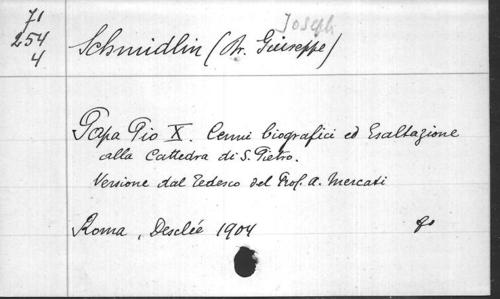 71
254
4
Joseph
Schmidlin (Dr. Giuseppe)
Papa Pio X. Cenni biografici ed Esaltazione
alla Cattedra di S. Pietro.
Versione dal Tedesco del Prof. A. Mercati
Roma, Desclée 1904